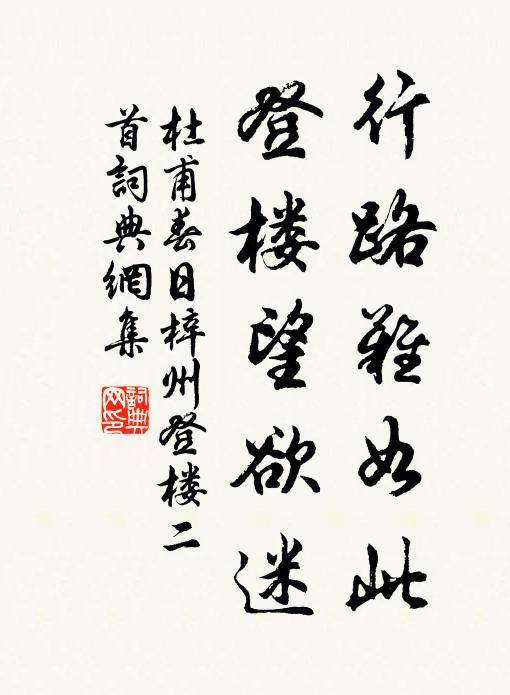 行路難如此
登楼望欲迷
杜甫春日梓州登楼二
首詞典網集
詞典
网印